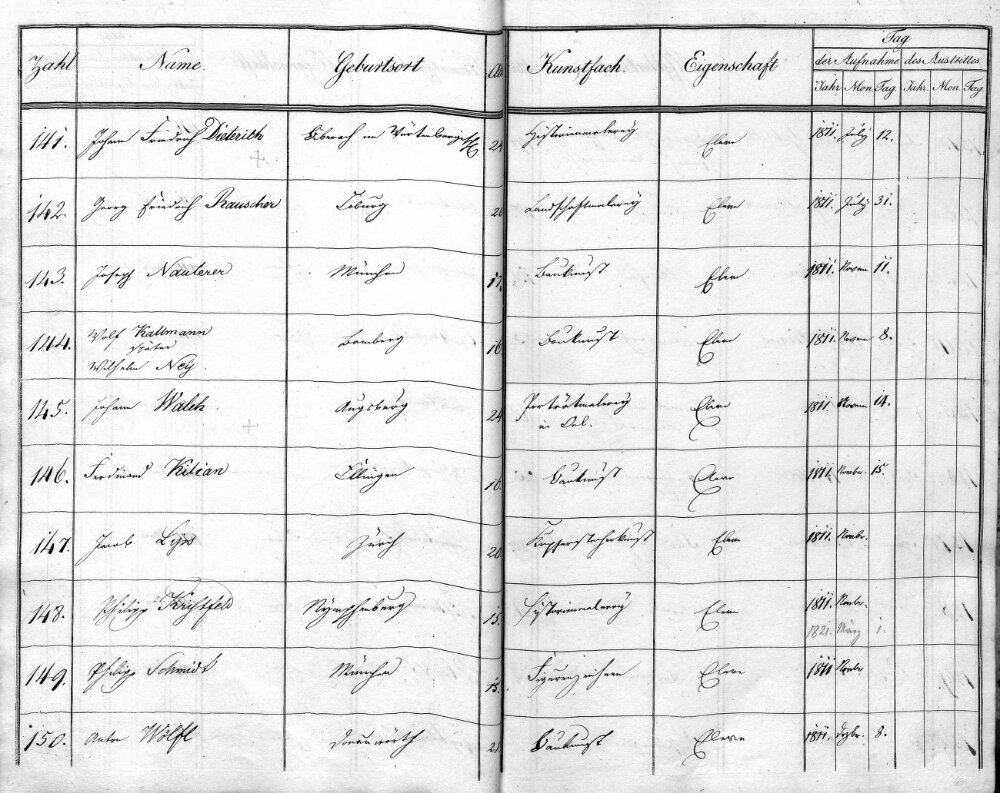 Zahl Name. Geburtsort Alt Kunstfach. Eigenschaft Tag
der Aufnahme des Austrittes
Jahr Mon. Tag. Jahr. Mon. Tag
141. Johann Friedrich Dieterich Biberach im Würtembergisch. 24 Historienmalerey Eleve 1811. July 12.
142. Georg Friedrich Rauscher Coburg 20 Landschaftmalerey Eleve 1811. July 31.
143. Joseph Nauterer München 17. Baukunst Eleve 1811. Novem 11.
144. Wolf Kattmann Bamberg 16 Baukunst Eleve 1811. Novem 8.
später
Wilhelm Neÿ.
145. Johann Walch Augsburg 24 Porträtmalerey Eleve 1811. Novem 14.
in Oel.
146. Ferdinand Kilian Ellingen 16 Baukunst Eleve 1811. Novbr. 15.
147. Jacob Lips Zürich 20 Kupferstecherkunst Eleve 1811. Novbr.
148. Philipp Kristfeld Nymphenburg 15. Historienmalerey Eleve 1811. Novbr.
1821. März 1.
149. Philipp Schmidt München 15. Figurenzeichnen Eleve 1811 Novbr
150. Anton Wölfl Donauwörth 21 Baukunst Eleve 1811. Dezbr. 8.